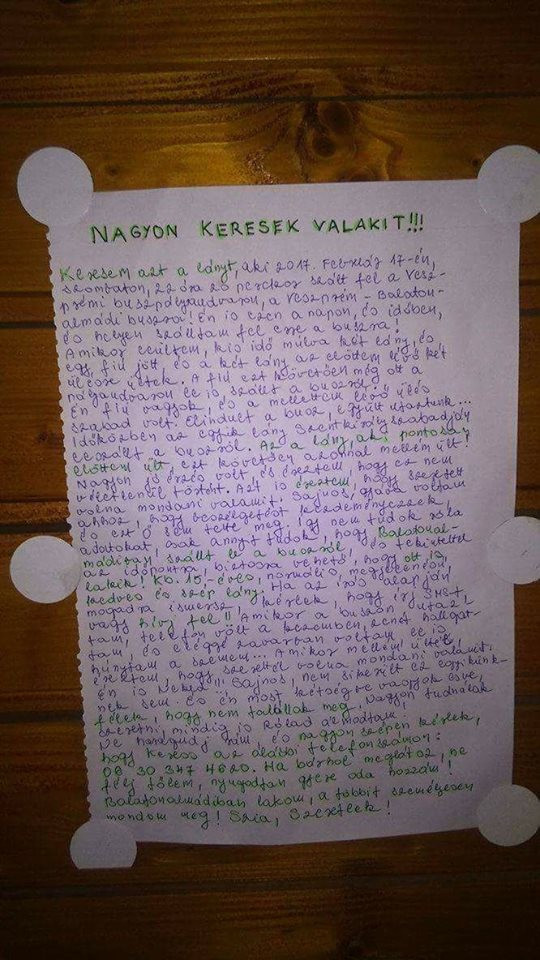 NAGYON KERESEK VALAKIT!!!
Keresem azt a lányt, aki 2017. Február 17-én,
szombaton, 22 óra 20 perckor szállt fel a Vesz-
prémi buszpályaudvaron, a Veszprém - Balaton-
almádi buszra! Én is ezen a napon, és időben,
és helyen szálltam fel erre a buszra!
Amikor leültem, kis idő múlva két lány, és
egy fiú jött, és a két lány az előttem lévő két
ülésre ültek. A fiú ezt követően még ott a
pályaudvaron le is szállt a buszról.
Én fiú vagyok, és a mellettem lévő ülés
szabad volt. Elindult a busz, együtt utaztunk...
Időközben az egyik lány Szentkirályszabadján
leszállt a buszról. Az a lány, aki pontosan
előttem ült ezt követően azonnal mellém ült!
Nagyon jó érzés volt, és éreztem, hogy ez nem
véletlenül történt. Azt is éreztem, hogy szeretett
volna mondani valamit. Sajnos, gyáva voltam
ahhoz, hogy beszélgetést kezdeményezzek,
és ezt Ő sem tette meg. Így nem tudok róla
adatokat, csak annyit tudok, hogy Balatonal-
mádiban szállt le a buszról, és tekintettel
az időpontra biztosra vehető, hogy ott is
lakik! Kb. 15 éves, normális megjelenésű
kedves és szép lány. Ha az írás alapján
magadra ismersz, kérlek, hogy írj SMS-t,
vagy hívj fel!! Amikor a buszon utaz-
tam, telefon volt a kezemben, zenét hallgat-
tam, és eléggé zavarban voltam le is
hunytam a szemem... Amikor mellém ültél,
éreztem, hogy szerettél volna mondani valamit,
én is Neked!!! Sajnos, nem sikerült ez egyikünk-
nek sem. És én most kétségbe vagyok esve,
félek, hogy nem talállak meg. Nagyon tudnálak
szeretni, mindig is Rólad álmodtam,
Ne haragudj rám, és nagyon szépen kérlek,
hogy keress az alábbi telefonszámon:
06 30 347 4620. Ha bárhol meglátsz, ne
félj tőlem, nyugodtan gyere oda hozzám!
Balatonalmádiban lakom, a többit személyesen
mondom meg! Szia, Szeretlek!